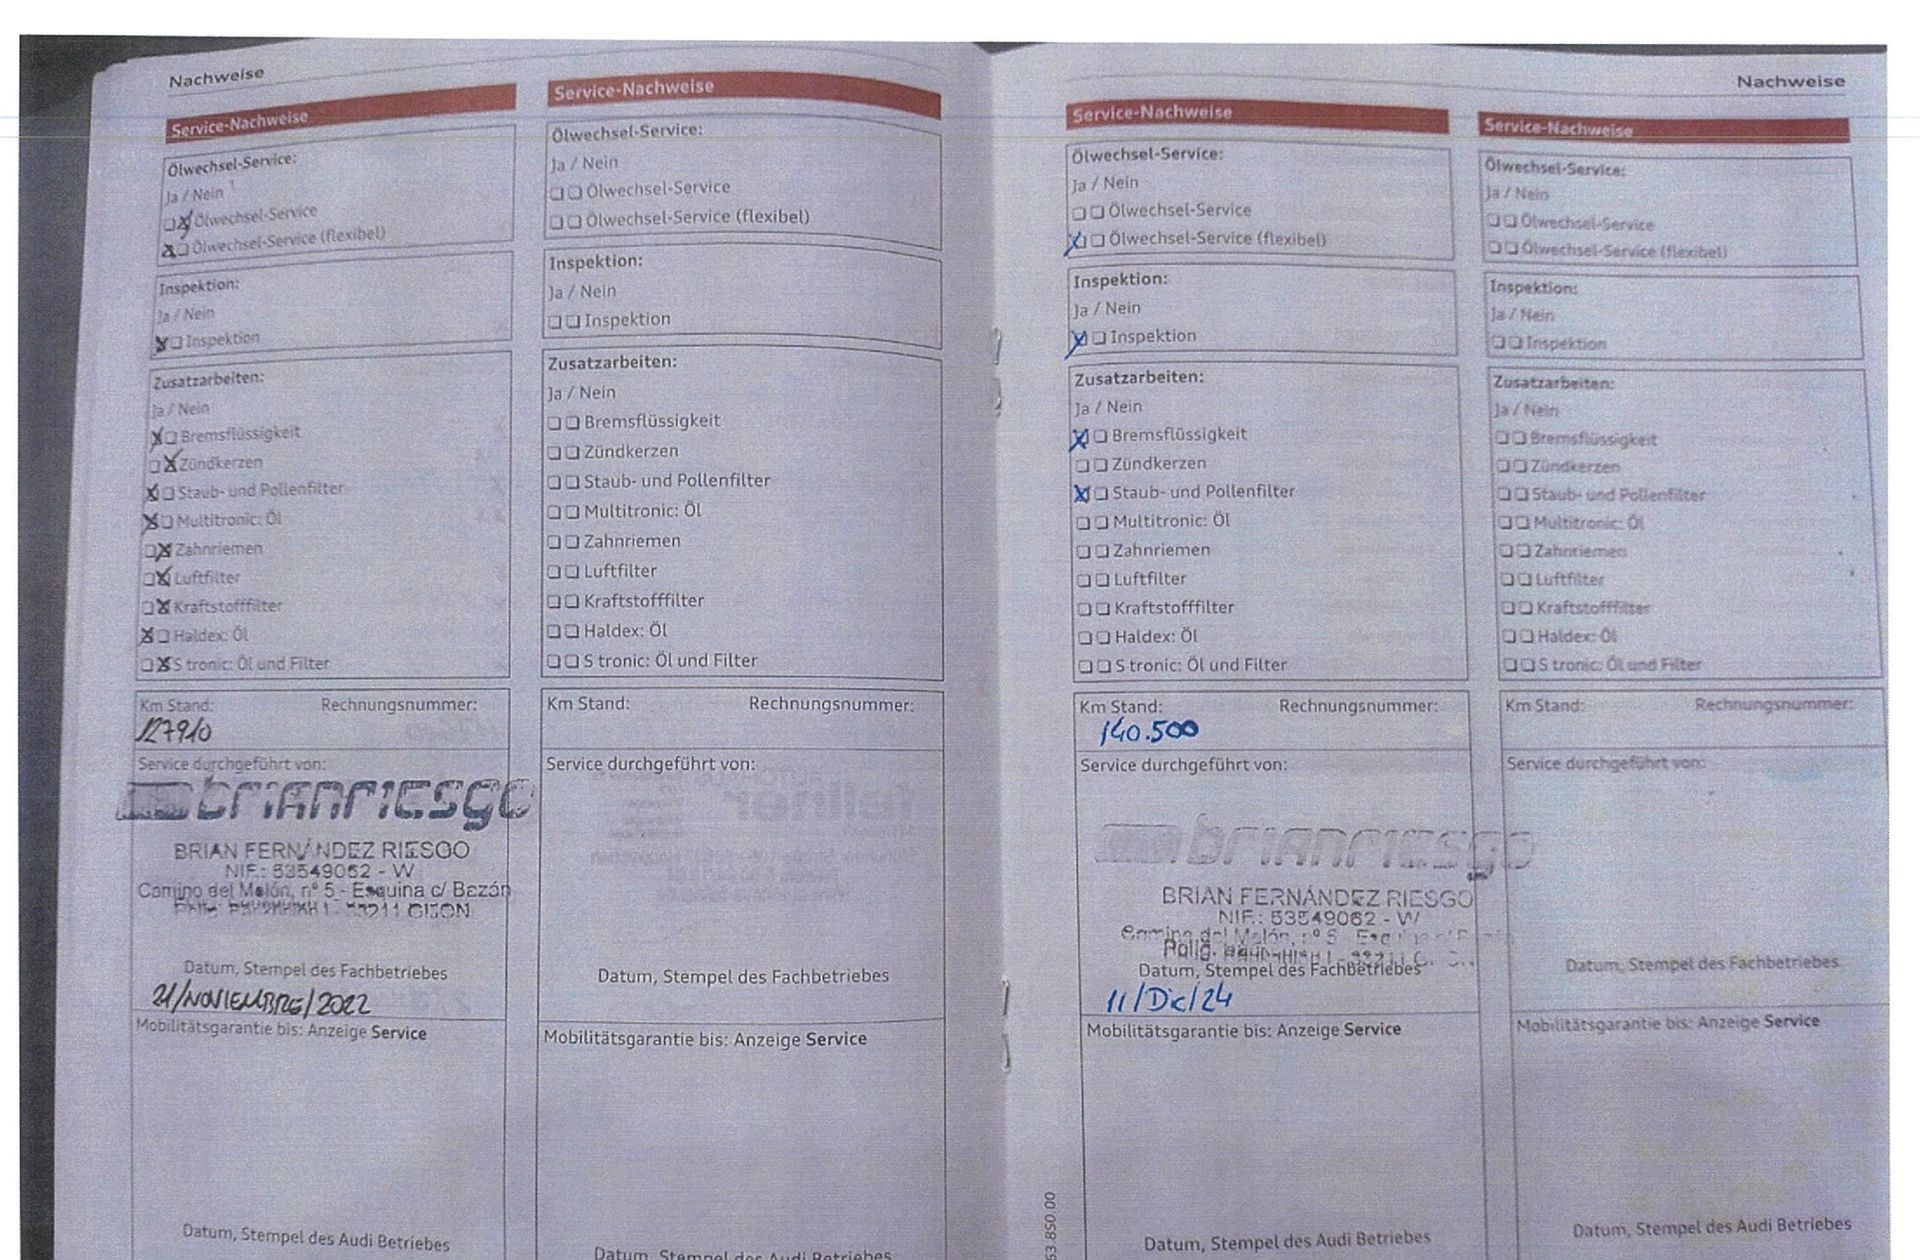 Nachweise
Service-Nachweise
Ölwechsel-Service:
Ja / Nein
Ölwechsel-Service
Ölwechsel-Service (flexibel)
Inspektion:
Ja / Nein
Inspektion
Zusatzarbeiten:
Ja / Nein
Bremsflüssigkeit
Zündkerzen
Staub- und Pollenfilter
Multitronic: Öl
Zahnriemen
Luftfilter
Kraftstofffilter
Haldex: Öl
S tronic: Öl und Filter
Km Stand: Rechnungsnummer:
127910
Service durchgeführt von:
brianriesgo
BRIAN FERNÁNDEZ RIESGO
NIF.: 53549062 - W
Camino del Melón, nº 5 - Esquina c/ Bazán
33211 GIJON
Datum, Stempel des Fachbetriebes
21/NOVIEMBRE/2022
Mobilitätsgarantie bis: Anzeige Service
Datum, Stempel des Audi Betriebes
Service-Nachweise
Ölwechsel-Service:
Ja / Nein
Ölwechsel-Service
Ölwechsel-Service (flexibel)
Inspektion:
Ja / Nein
Inspektion
Zusatzarbeiten:
Ja / Nein
Bremsflüssigkeit
Zündkerzen
Staub- und Pollenfilter
Multitronic: Öl
Zahnriemen
Luftfilter
Kraftstofffilter
Haldex: Öl
S tronic: Öl und Filter
Km Stand: Rechnungsnummer:
Service durchgeführt von:
Datum, Stempel des Fachbetriebes
Mobilitätsgarantie bis: Anzeige Service
Datum, Stempel des Audi Betriebes
Nachweise
Service-Nachweise
Ölwechsel-Service:
Ja / Nein
Ölwechsel-Service
Ölwechsel-Service (flexibel)
Inspektion:
Ja / Nein
Inspektion
Zusatzarbeiten:
Ja / Nein
Bremsflüssigkeit
Zündkerzen
Staub- und Pollenfilter
Multitronic: Öl
Zahnriemen
Luftfilter
Kraftstofffilter
Haldex: Öl
S tronic: Öl und Filter
Km Stand: Rechnungsnummer:
140.500
Service durchgeführt von:
brianriesgo
BRIAN FERNÁNDEZ RIESGO
NIF.: 53549062 - W
Camino del Melón, nº 5
Polig.
Datum, Stempel des Fachbetriebes
11/Dic/24
Mobilitätsgarantie bis: Anzeige Service
Datum, Stempel des Audi Betriebes
53.850.00
Service-Nachweise
Ölwechsel-Service:
Ja / Nein
Ölwechsel-Service
Ölwechsel-Service (flexibel)
Inspektion:
Ja / Nein
Inspektion
Zusatzarbeiten:
Ja / Nein
Bremsflüssigkeit
Zündkerzen
Staub- und Pollenfilter
Multitronic: Öl
Zahnriemen
Luftfilter
Kraftstofffilter
Haldex: Öl
S tronic: Öl und Filter
Km Stand: Rechnungsnummer:
Service durchgeführt von:
Datum, Stempel des Fachbetriebes
Mobilitätsgarantie bis: Anzeige Service
Datum, Stempel des Audi Betriebes